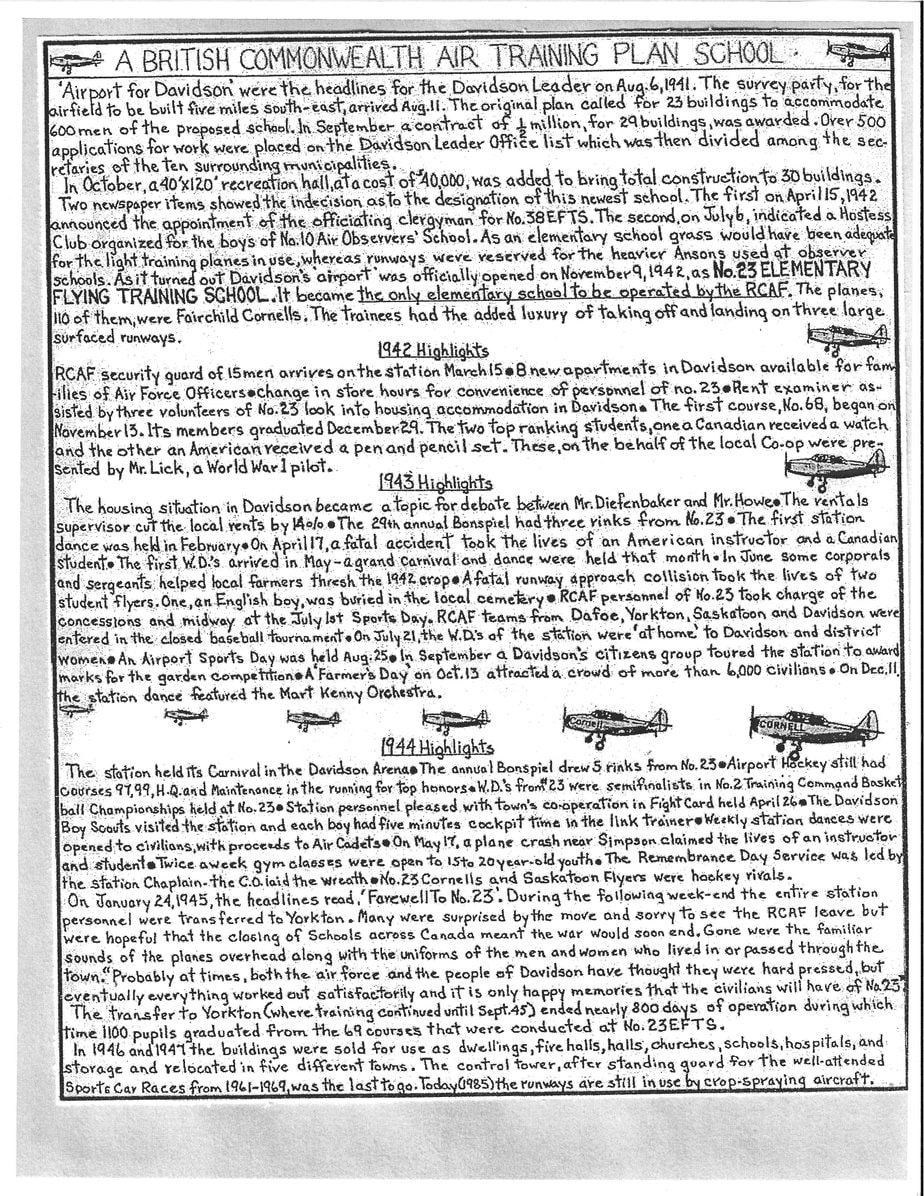 A BRITISH COMMONWEALTH AIR TRAINING PLAN SCHOOL
'Airport for Davidson' were the headlines for the Davidson Leader on Aug.6,1941. The survey party, for the
airfield to be built five miles south-east, arrived Aug.11. The original plan called for 23 buildings to accommodate
600 men of the proposed school. In September a contract of ½ million, for 29 buildings, was awarded. Over 500
applications for work were placed on the Davidson Leader Office list which was then divided among the sec-
retaries of the ten surrounding municipalities.
In October, a 40'x120' recreation hall, at a cost of $40,000, was added to bring total construction to 30 buildings.
Two newspaper items showed the indecision as to the designation of this newest school. The first on April 15, 1942
announced the appointment of the officiating clergyman for No.38 EFTS. The second, on July 6, indicated a Hostess
Club organized for the boys of No.10 Air Observers' School. As an elementary school grass would have been adequate
for the light training planes in use, whereas runways were reserved for the heavier Ansons used at observer
schools. As it turned out Davidson's airport was officially opened on November 9, 1942, as No.23 ELEMENTARY
FLYING TRAINING SCHOOL. It became the only elementary school to be operated by the RCAF. The planes,
110 of them, were Fairchild Cornells. The trainees had the added luxury of taking off and landing on three large
surfaced runways.
1942 Highlights
RCAF security guard of 15 men arrives on the station March 15•8 new apartments in Davidson available for fam-
ilies of Air Force Officers•change in store hours for convenience of personnel of no.23•Rent examiner as-
sisted by three volunteers of No.23 look into housing accommodation in Davidson• The first course, No.68, began on
November 13. Its members graduated December 29. The two top ranking students, one a Canadian received a watch
and the other an American received a pen and pencil set. These, on the behalf of the local Co-op were pre-
sented by Mr. Lick, a World War 1 pilot.
1943 Highlights
The housing situation in Davidson became a topic for debate between Mr. Diefenbaker and Mr. Howe•The rentals
supervisor cut the local rents by 14%•The 29th annual Bonspiel had three rinks from No.23•The first station
dance was held in February•On April 17, a fatal accident took the lives of an American instructor and a Canadian
student•The first W.D.'s arrived in May-a grand Carnival and dance were held that month•In June some corporals
and sergeants helped local farmers thresh the 1942 crop•A fatal runway approach collision took the lives of two
student flyers. One, an English boy, was buried in the local cemetery• RCAF personnel of No.23 took charge of the
concessions and midway at the July 1st Sports Day. RCAF teams from Dafoe, Yorkton, Saskatoon and Davidson were
entered in the closed baseball tournament•On July 21, the W.D.'s of the station were 'at home' to Davidson and district
women•An Airport Sports Day was held Aug.25•In September a Davidson's citizens group toured the station to award
marks for the garden competition•A 'Farmer's Day' on Oct.13 attracted a crowd of more than 6,000 civilians• On Dec.11,
the station dance featured the Mart Kenny Orchestra.
Cornell
CORNELL
1944 Highlights
The station held its Carnival in the Davidson Arena•The annual Bonspiel drew 5 rinks from No.23•Airport Hockey still had
courses 97,99, H.Q. and Maintenance in the running for top honors•W.D.'s from #23 were semifinalists in No.2 Training Command Basket
ball Championships held at No.23•Station personnel pleased with town's co-operation in Fight Card held April 26•The Davidson
Boy Scouts visited the station and each boy had five minutes cockpit time in the link trainer•Weekly station dances were
opened to civilians, with proceeds to Air Cadets•On May 17, a plane crash near Simpson claimed the lives of an instructor
and student•Twice a week gym classes were open to 15 to 20 year-old youth•The Remembrance Day Service was led by
the station Chaplain-the C.O. laid the wreath•No.23 Cornells and Saskatoon Flyers were hockey rivals.
On January 24,1945, the headlines read, 'Farewell To No.23'. During the following week-end the entire station
personnel were transferred to Yorkton. Many were surprised by the move and sorry to see the RCAF leave but
were hopeful that the closing of Schools across Canada meant the war would soon end. Gone were the familiar
sounds of the planes overhead along with the uniforms of the men and women who lived in or passed through the
town. "Probably at times, both the air force and the people of Davidson have thought they were hard pressed, but
eventually everything worked out satisfactorily and it is only happy memories that the civilians will have of No.23"
The transfer to Yorkton (where training continued until Sept.45) ended nearly 800 days of operation during which
time 1100 pupils graduated from the 69 courses that were conducted at No.23 EFTS.
In 1946 and 1947 the buildings were sold for use as dwellings, fire halls, halls, churches, schools, hospitals, and
storage and relocated in five different towns. The control tower, after standing guard for the well-attended
Sports Car Races from 1961-1969, was the last to go. Today (1985) the runways are still in use by crop-spraying aircraft.